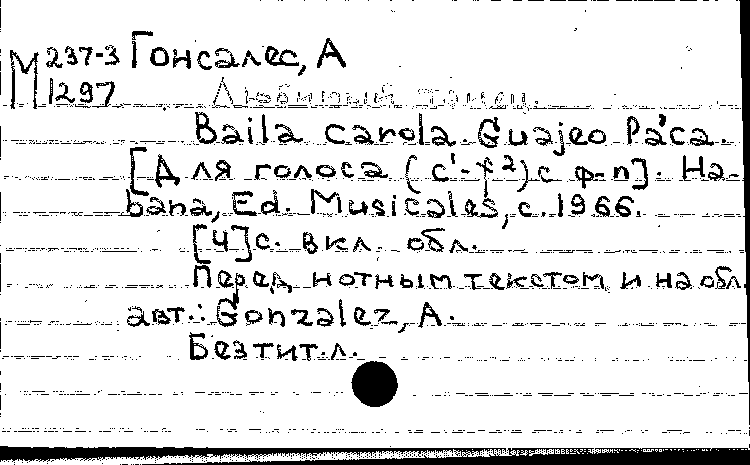 М 237-3 Гонсалес, А
1297 Любимый танец.
Baila Carola. Guajeo Páca.
[Для голоса (c¹-f²) с ф-п]. Ha-
bana, Ed. Musicales, c. 1966.
[4] с. вкл. обл.
Перед нотным текстом и на обл.
авт.: Gonzalez, A.
Без тит. л.